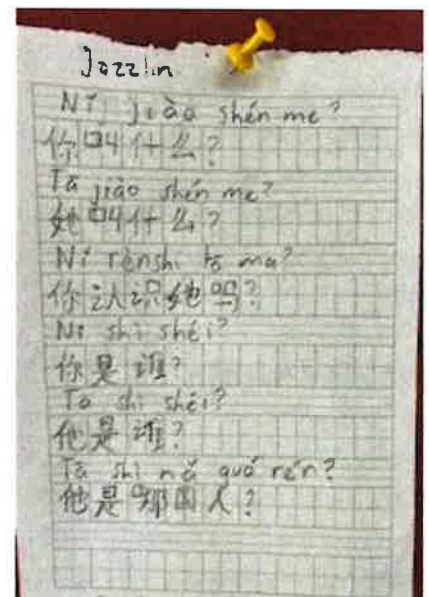 Jazzlin
Nǐ jiào shén me?
你叫什么?
Tā jiào shén me?
她叫什么?
Nǐ rènshi tā ma?
你认识她吗?
Nǐ shì shéi?
你是谁?
Tā shì shéi?
他是谁?
Tā shì nǎ guó rén?
他是哪国人?